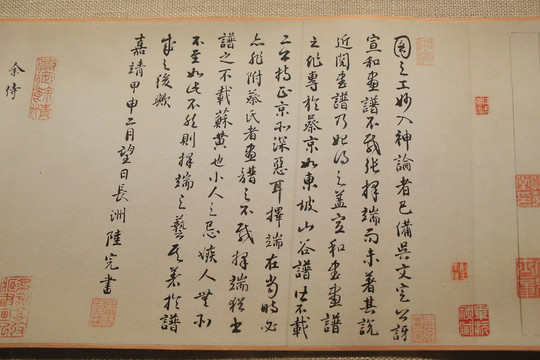 圖之工妙入神論者已備吳文定公訝
宣和畫譜不載張擇端而未著其說
近閱書譜乃始得之蓋宣和書畫譜
之作專於蔡京如東坡山谷譜皆不載
二公持正京所深惡耳擇端在當時必
亦非附蔡氏者畫譜之不載擇端猶書
譜之不載蘇黃也小人之忌嫉人無所
不至如此不然則擇端之藝其著於譜
成之後歟
嘉靖甲申二月望日長洲陸完書
余